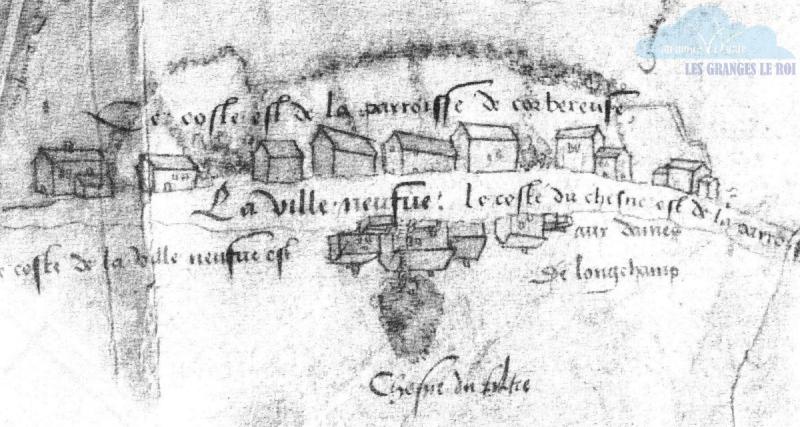 LES GRANGES LE ROI
Ce coste est de la parroisse de corbereuse
La ville neufue: le coste du chesne est de la parroiss
coste de la ville neufue est
aux dames
de longchamp
Chesne du